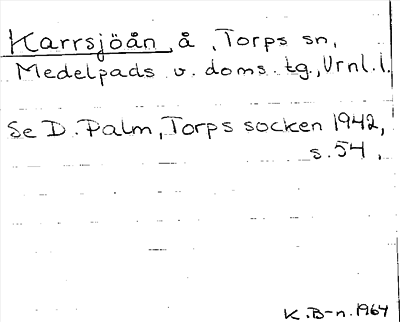 Karrsjöån, å, Torps sn,
Medelpads v. doms. tg., Vrnl. l.
Se D. Palm, Torps socken 1942,
s. 54,
K. B-n. 1964